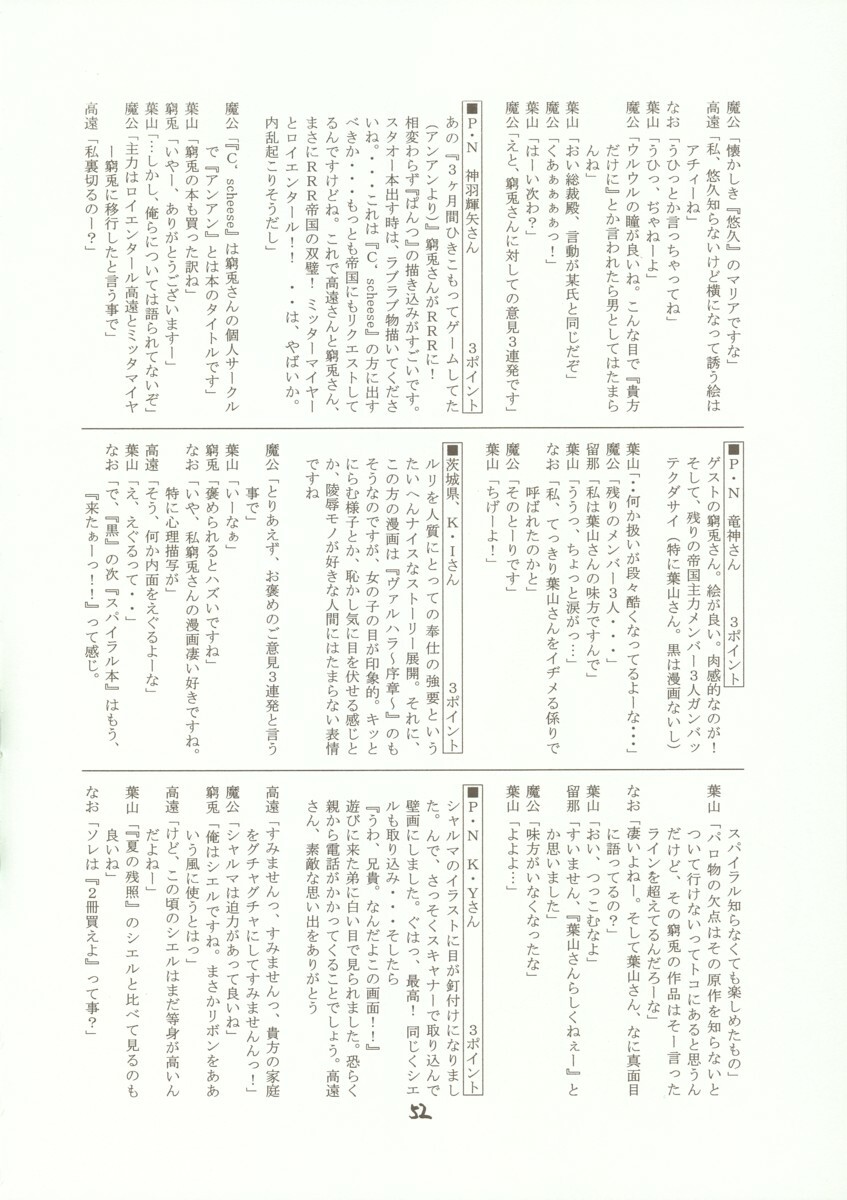 魔公「懐かしき『悠久』のマリアですな」
高遠「私、悠久知らないけど横になって誘う絵は
アチィーね」
なお「うひっとか言っちゃってね」
葉山「うひっ、ぢゃねーよ」
魔公「ウルウルの瞳が良いね。こんな目で『貴方
だけに』とか言われたら男としてはたまら
んね」
葉山「おい総裁殿、言動が某氏と同じだぞ」
魔公「くあぁぁぁぁっ！」
葉山「はーい次わ？」
魔公「えと、窮兎さんに対しての意見３連発です」
■Ｐ・Ｎ　神羽輝矢さん　３ポイント
あの『３ヶ月間ひきこもってゲームしてた
（アンアンより）』窮兎さんがＲＲＲに！
相変わらず『ぱんつ』の描き込みがすごいです。
スタオー本出す時は、ラブラブ物描いてくださ
いね。・・・これは『Ｃ，ｓｃｈｅｅｓｅ』の方に出す
べきか・・・もっとも帝国にもリクエストして
るんですけどね。これで高遠さんと窮兎さん、
まさにＲＲＲ帝国の双璧！ミッターマイヤー
とロイエンタール！！・・は、やばいか。
内乱起こりそうだし」
魔公「『Ｃ，ｓｃｈｅｅｓｅ』は窮兎さんの個人サークル
で『アンアン』とは本のタイトルです」
葉山「窮兎の本も買った訳ね」
窮兎「いやー、ありがとうございますー」
葉山「…しかし、俺らについては語られてないぞ」
魔公「主力はロイエンタール高遠とミッタマイヤ
ー窮兎に移行したと言う事で」
高遠「私裏切るのー？」
■Ｐ・Ｎ　竜神さん　３ポイント
ゲストの窮兎さん。絵が良い。肉感的なのが！
そして、残りの帝国主力メンバー３人ガンバッ
テクダサイ（特に葉山さん。黒は漫画ないし）
葉山「・・何か扱いが段々酷くなってるよーな・・・」
魔公「残りのメンバー３人・・・」
留那「私は葉山さんの味方ですんで」
葉山「ううっ、ちょっと涙がっ…」
なお「私、てっきり葉山さんをイヂメる係りで
呼ばれたのかと」
魔公「そのとーりです」
葉山「ちげーよ！」
■茨城県、Ｋ・Ｉさん　３ポイント
ルリを人質にとっての奉仕の強要という
たいへんナイスなストーリー展開。それに、
この方の漫画は『ヴァルハラ～序章～』のも
そうなのですが、女の子の目が印象的。キッと
にらむ様子とか、恥かし気に目を伏せる感じと
か、陵辱モノが好きな人間にはたまらない表情
ですね
魔公「とりあえず、お褒めのご意見３連発と言う
事で」
葉山「いーなぁ」
窮兎「褒められるとハズいですね」
なお「いや、私窮兎さんの漫画凄い好きですね。
特に心理描写が」
高遠「そう、何か内面をえぐるよーな」
葉山「え、えぐるって・・」
なお「で、『黒』の次『スパイラル本』はもう、
『来たぁーっ！！』って感じ。
スパイラル知らなくても楽しめたもの」
葉山「パロ物の欠点はその原作を知らないと
ついて行けないってトコにあると思うん
だけど、その窮兎の作品はそー言った
ラインを超えてるんだろーな」
なお「凄いよねー。そして葉山さん、なに真面目
に語ってるの？」
葉山「おい、つっこむなよ」
留那「すいません、『葉山さんらしくねぇー』と
か思いました」
魔公「味方がいなくなったな」
葉山「よよよ…」
■Ｐ・Ｎ　Ｋ・Ｙさん　３ポイント
シャルマのイラストに目が釘付けになりまし
た。んで、さっそくスキャナーで取り込んで
壁画にしました。ぐはっ、最高！同じくシエ
ルも取り込み・・・そしたら
『うわ、兄貴。なんだよこの画面！！』
遊びに来た弟に白い目で見られました。恐らく
親から電話がかかってくることでしょう。高遠
さん、素敵な思い出をありがとう
高遠「すみませんっ、すみませんっ、貴方の家庭
をグチャグチャにしてすみませんんっ！」
魔公「シャルマは迫力があって良いね」
窮兎「俺はシエルですね。まさかリボンをああ
いう風に使うとはっ」
高遠「けど、この頃のシエルはまだ等身が高いん
だよねー」
葉山「『夏の残照』のシエルと比べて見るのも
良いね」
なお「ソレは『２冊買えよ』って事？」
52